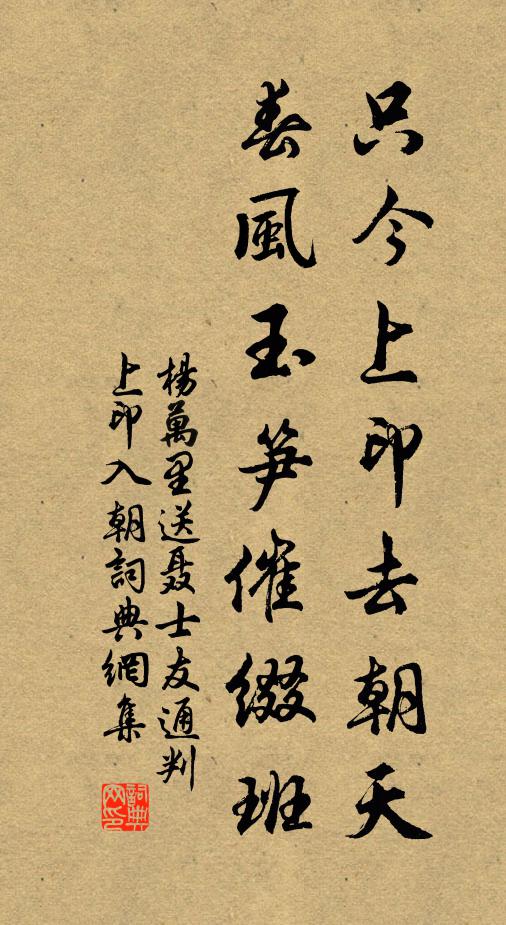 只今上印去朝天
春風玉笋催綴班
楊萬里送聂士友通判
上印入朝詞典網集
詞典
网印